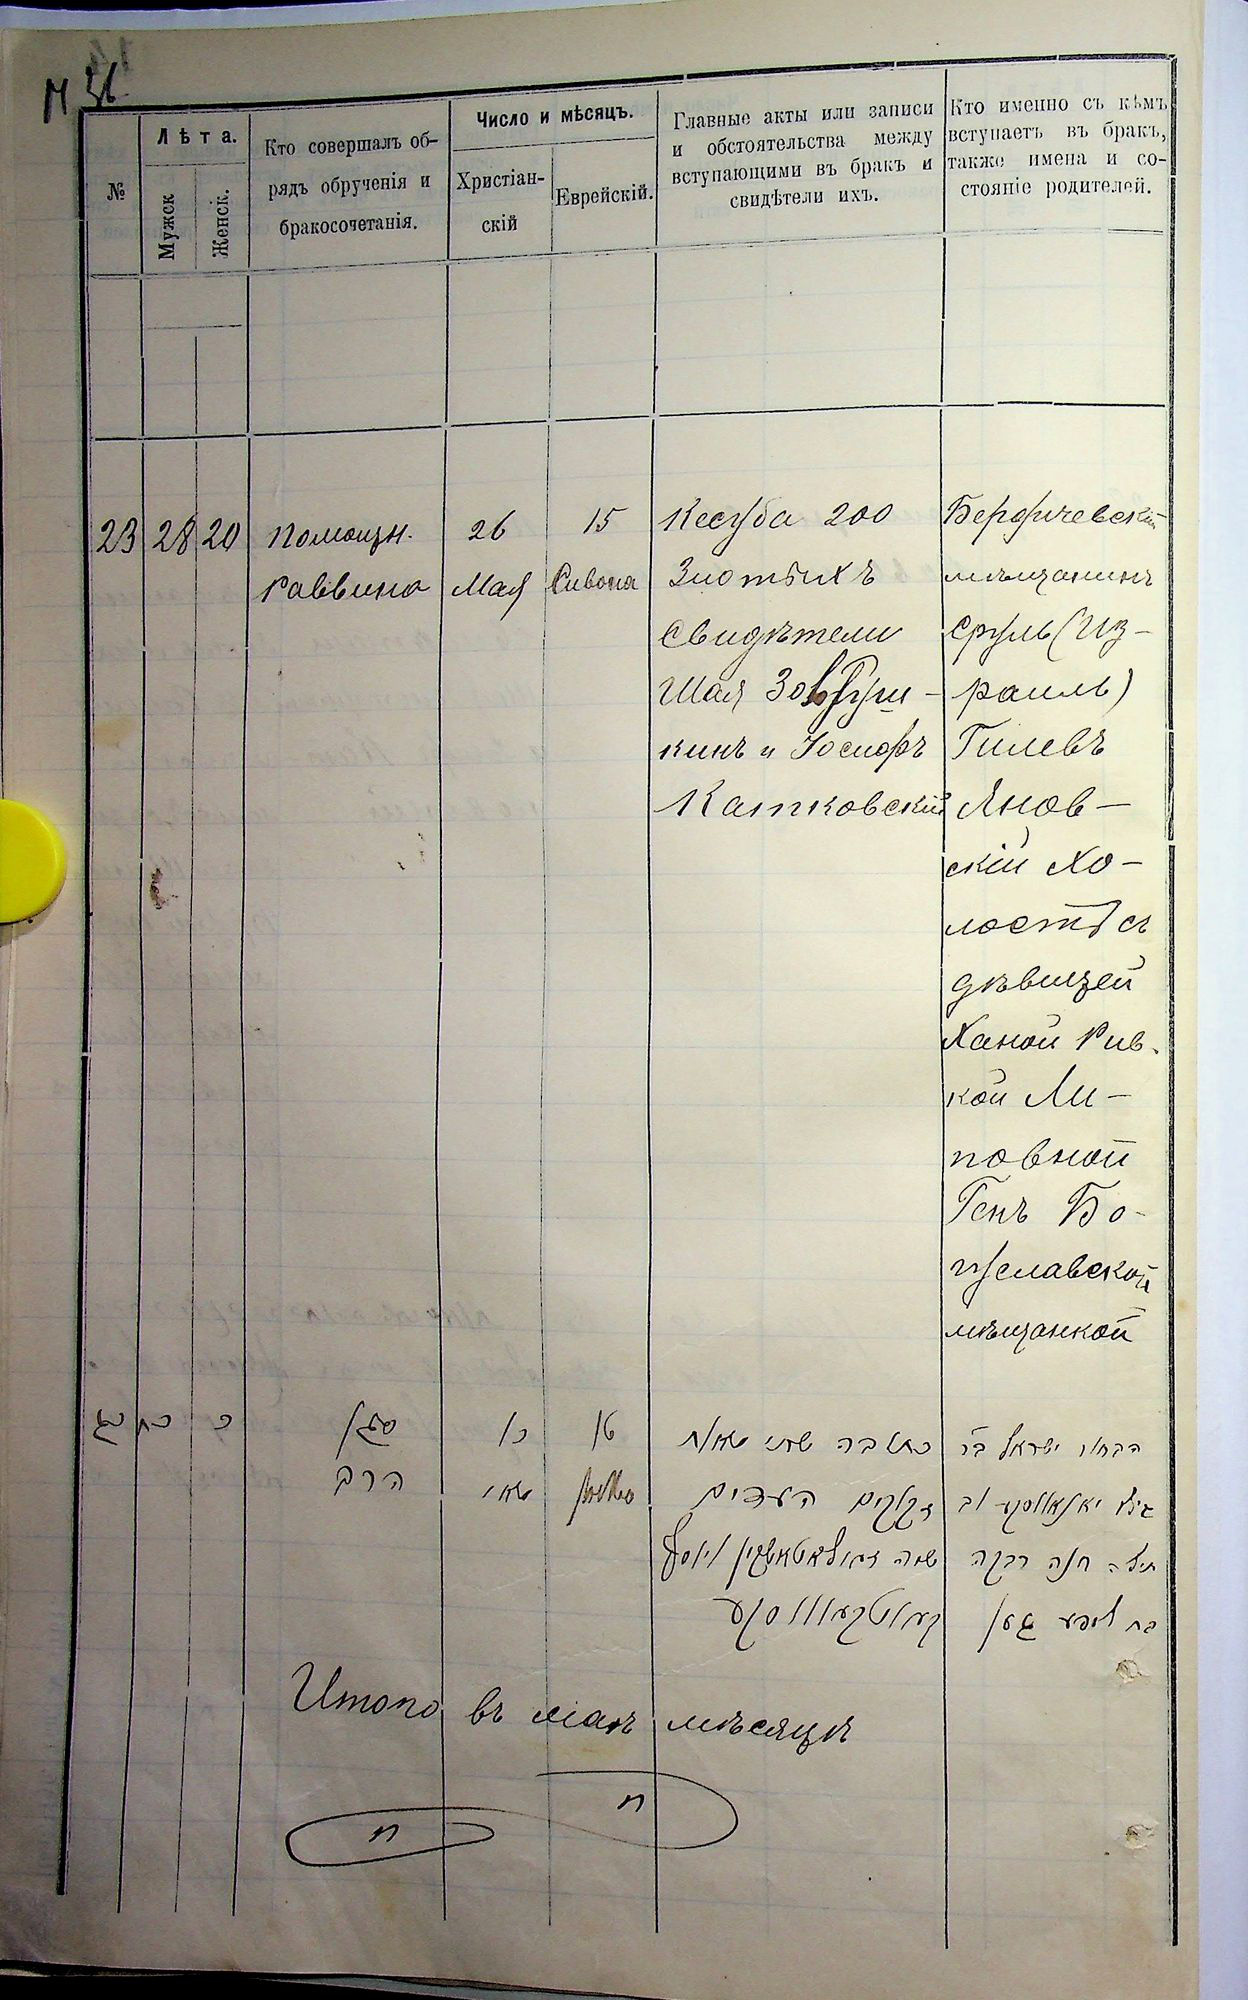 №
Лѣта.
Мужск
Женск.
Кто совершалъ об-
рядъ обрученія и
бракосочетанія.
Число и мѣсяцъ.
Христіан-
скій
Еврейскій.
Главные акты или записи
и обстоятельства между
вступающими въ бракъ и
свидѣтели ихъ.
Кто именно съ кѣмъ
вступаетъ въ бракъ,
также имена и со-
стояніе родителей.
23
28
20
Помощн.
Раввина
26
Мая
15
Сивона
Кесуба 200
Злотыхъ
Свидѣтели
Шая
кинъ и Іосифъ
Катковскій
Бердичевскій
мѣщанинъ
Сруль (Из-
раиль)
Гилевъ
Янов-
скій хо-
лостъ съ
дѣвицей
Ханой Рив-
кой Ли-
повной
Генъ Бо-
гуславской
мѣщанкой
כג
כח
כ
סגן
הרב
כו
מאי
טו
כתובה שתי מאות
זקוקים העדים
הבחור ישראל בר
חנה רבקה
בת ליפע גען
Итого въ маѣ мѣсяцѣ
п
п